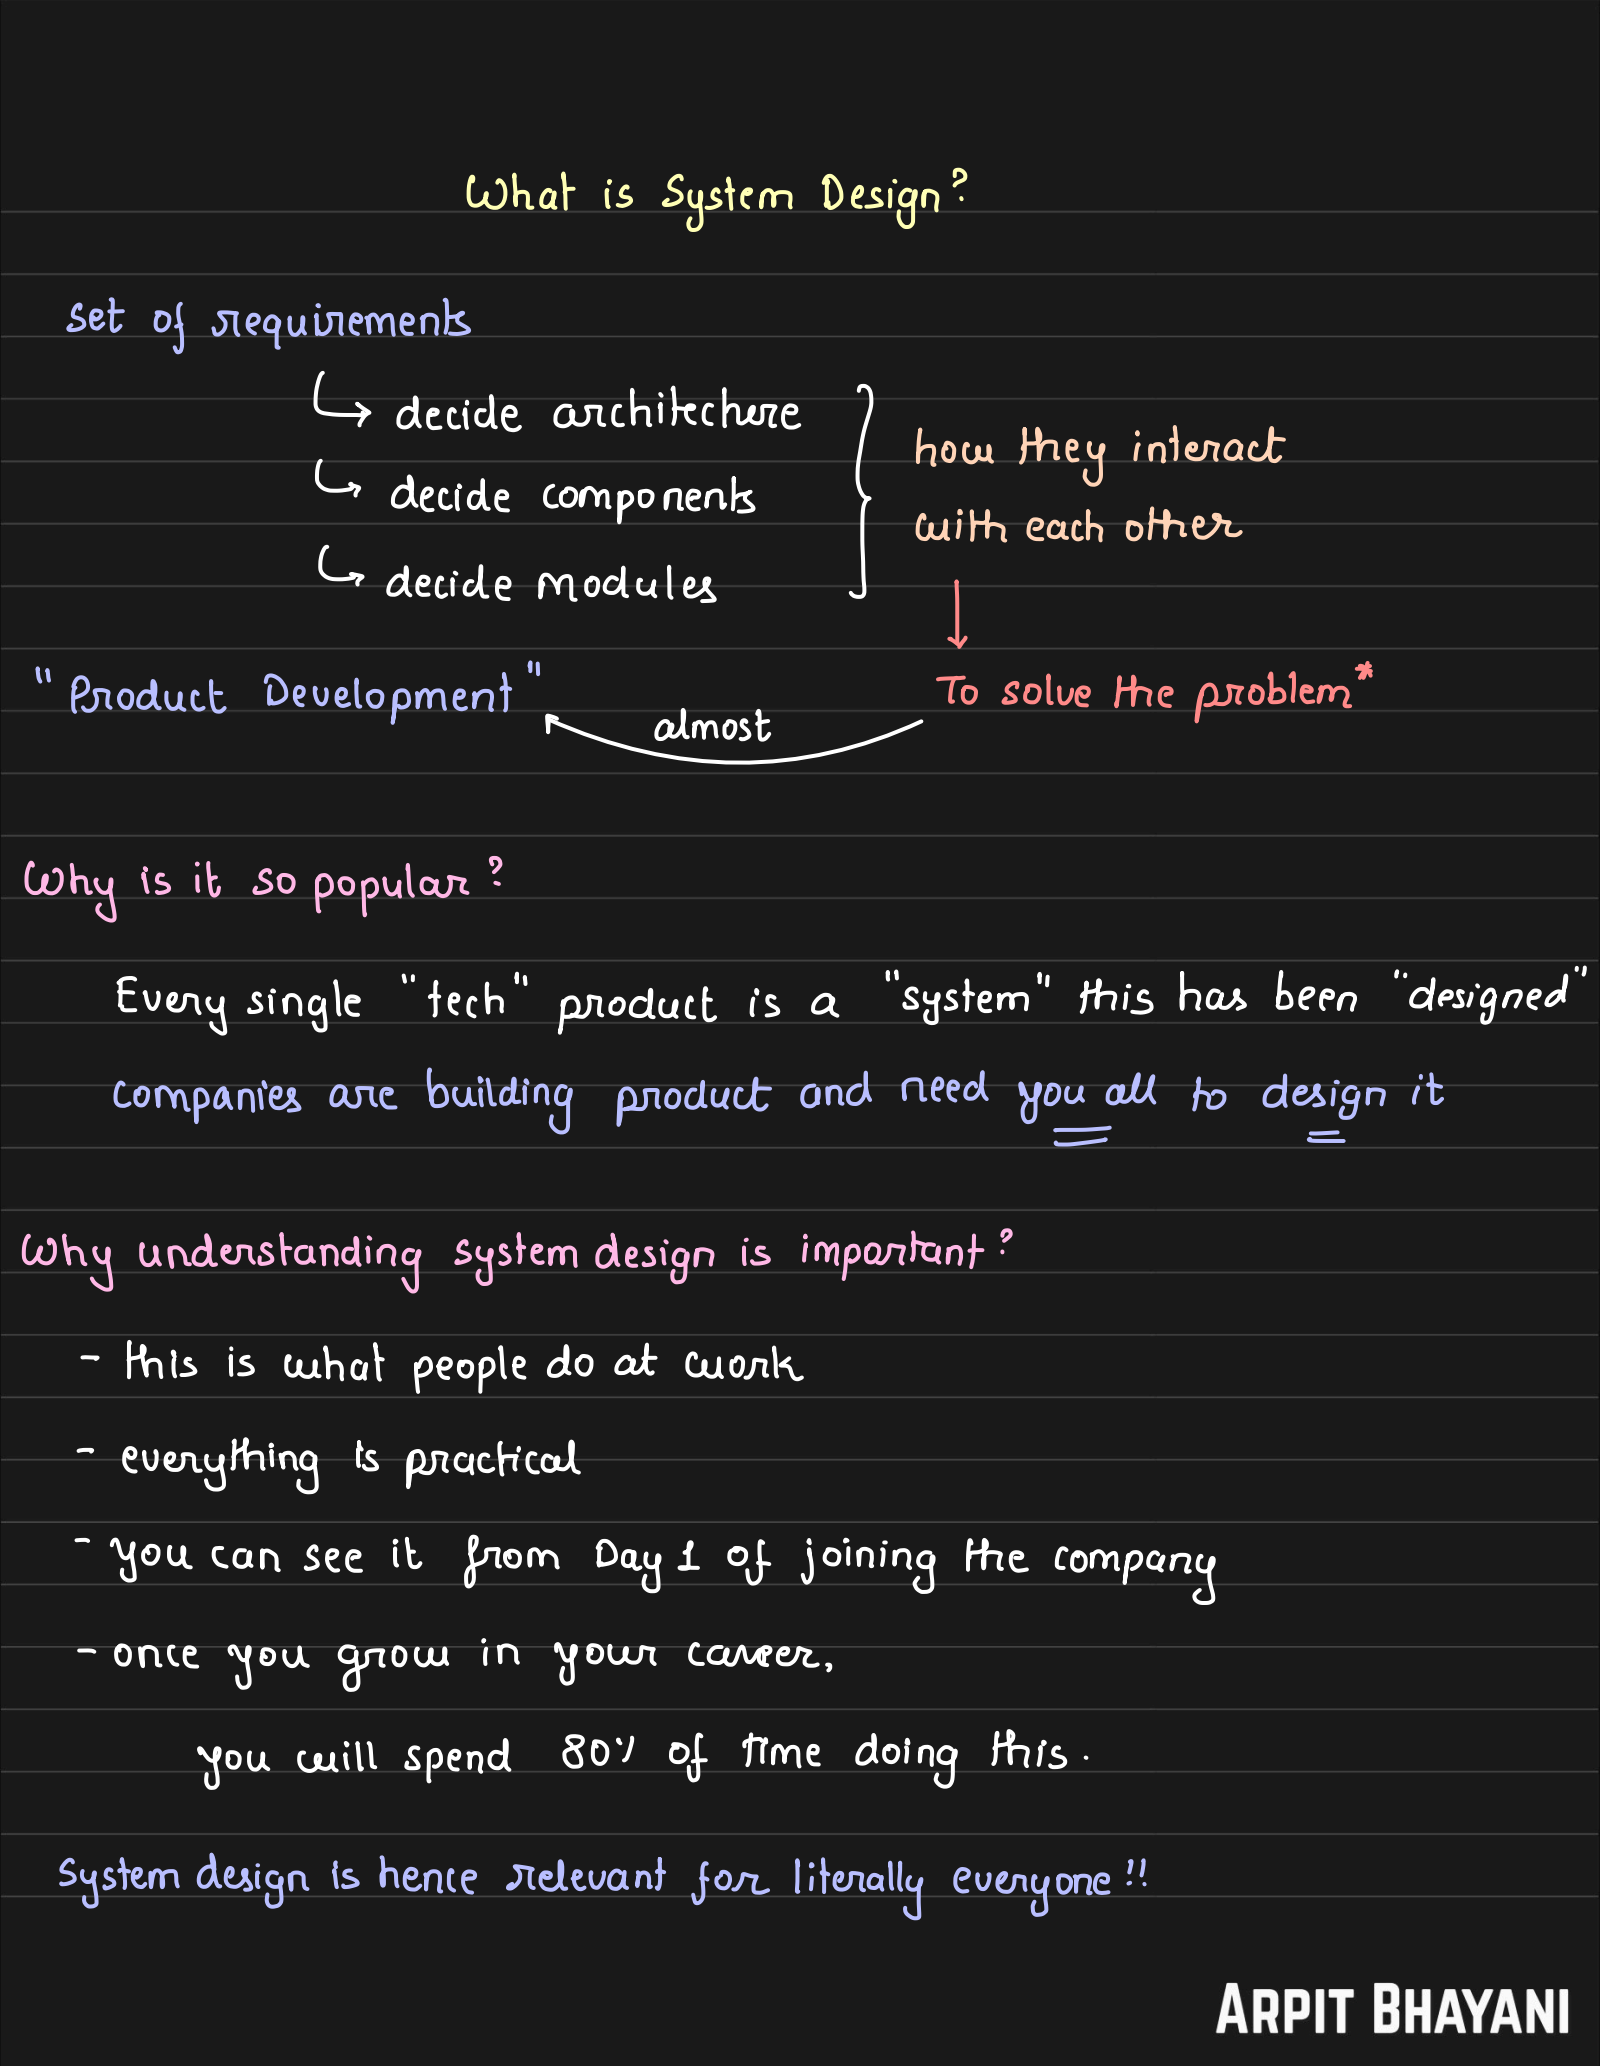 What is System Design?
set of requirements
decide architecture
decide components
decide modules
how they interact
with each other
"Product Development"
To solve the problem*
almost
Why is it so popular?
Every single "tech" product is a "system" this has been "designed"
companies are building product and need you all to design it
Why understanding system design is important?
- this is what people do at work
- everything is practical
- you can see it from Day 1 of joining the company
- once you grow in your career,
you will spend 80% of time doing this.
System design is hence relevant for literally everyone!!
ARPIT BHAYANI